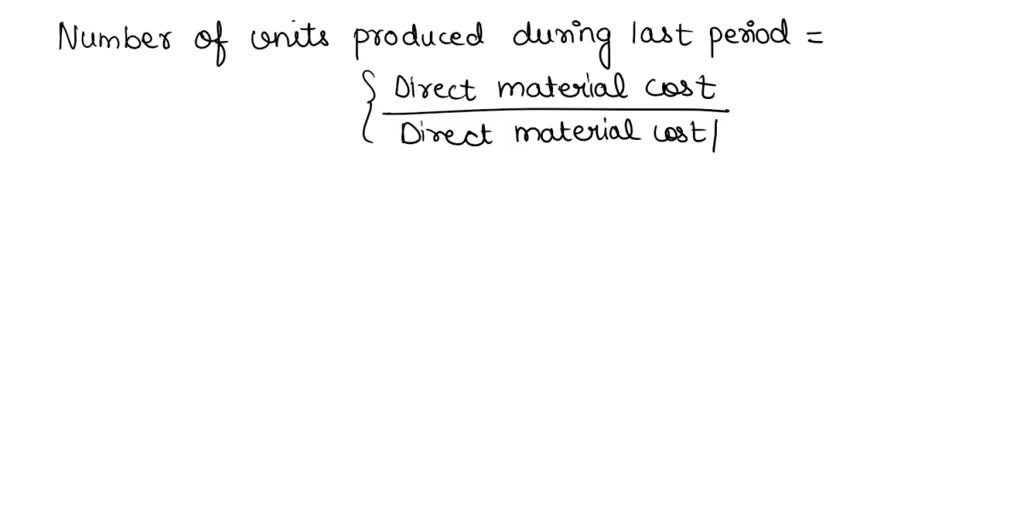 Number of units produced during last period =
{ Direct material cost
Direct material cost/